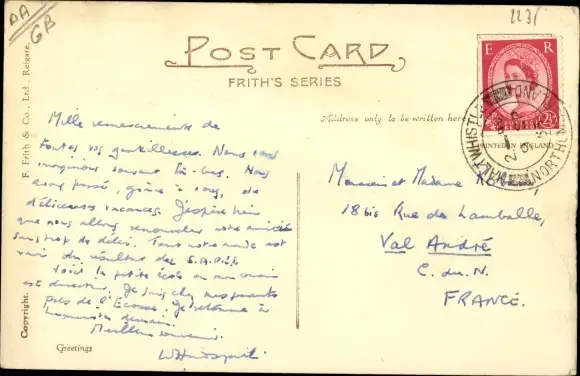 AA
GB
223
POST CARD
FRITH'S SERIES
E R
2½
Address only to be written here
PRINTED IN ENGLAND
HALTWHISTLE
NORTHUMBERLAND
F. Frith & Co., Ltd., Reigate.
Copyright.
Mille remerciements de
toutes vos gentillesses. Nous vous
imaginons souvent là-bas. Nous
avons passé, grâce à vous, de
délicieuses vacances. J'espère bien
que nous allons renouveler notre amitié
sans trop de délai. Tout notre monde est
ravi du résultat des
Voici la petite école où mon
est directeur. Je suis chez mes parents
près de l'Ecosse. Je retourne à
demain.
Meilleurs souvenirs.
Greetings
Monsieur et Madame
18 bis Rue de Lamballe,
Val André
C. du. N.
FRANCE.